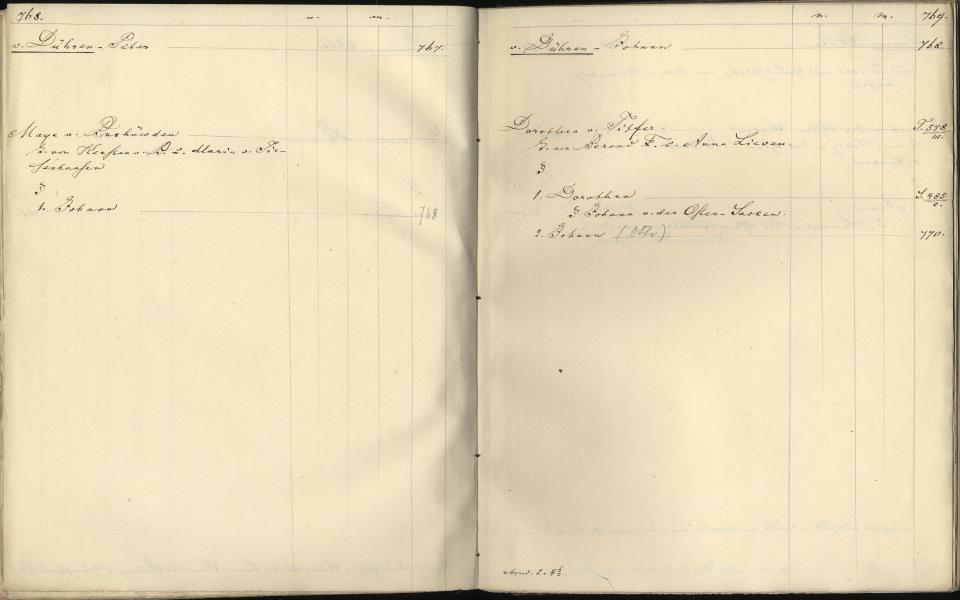 768. n. m.
v. Dühren - Peter 767.
Maye v. Buxhöwden
E. von Kersten v. B. u. Maria v. Tie-
senhausen
1. Johann 768
n. m. 769.
v. Dühren - Johann 768.
Dorothea v. Titfer T. 578/m.
E. von Berend T. u. Anna Lieven.
1. Dorothea S. 485/c.
Johann v. der Osten-Sacken.
2. Johann (Otto) 770.